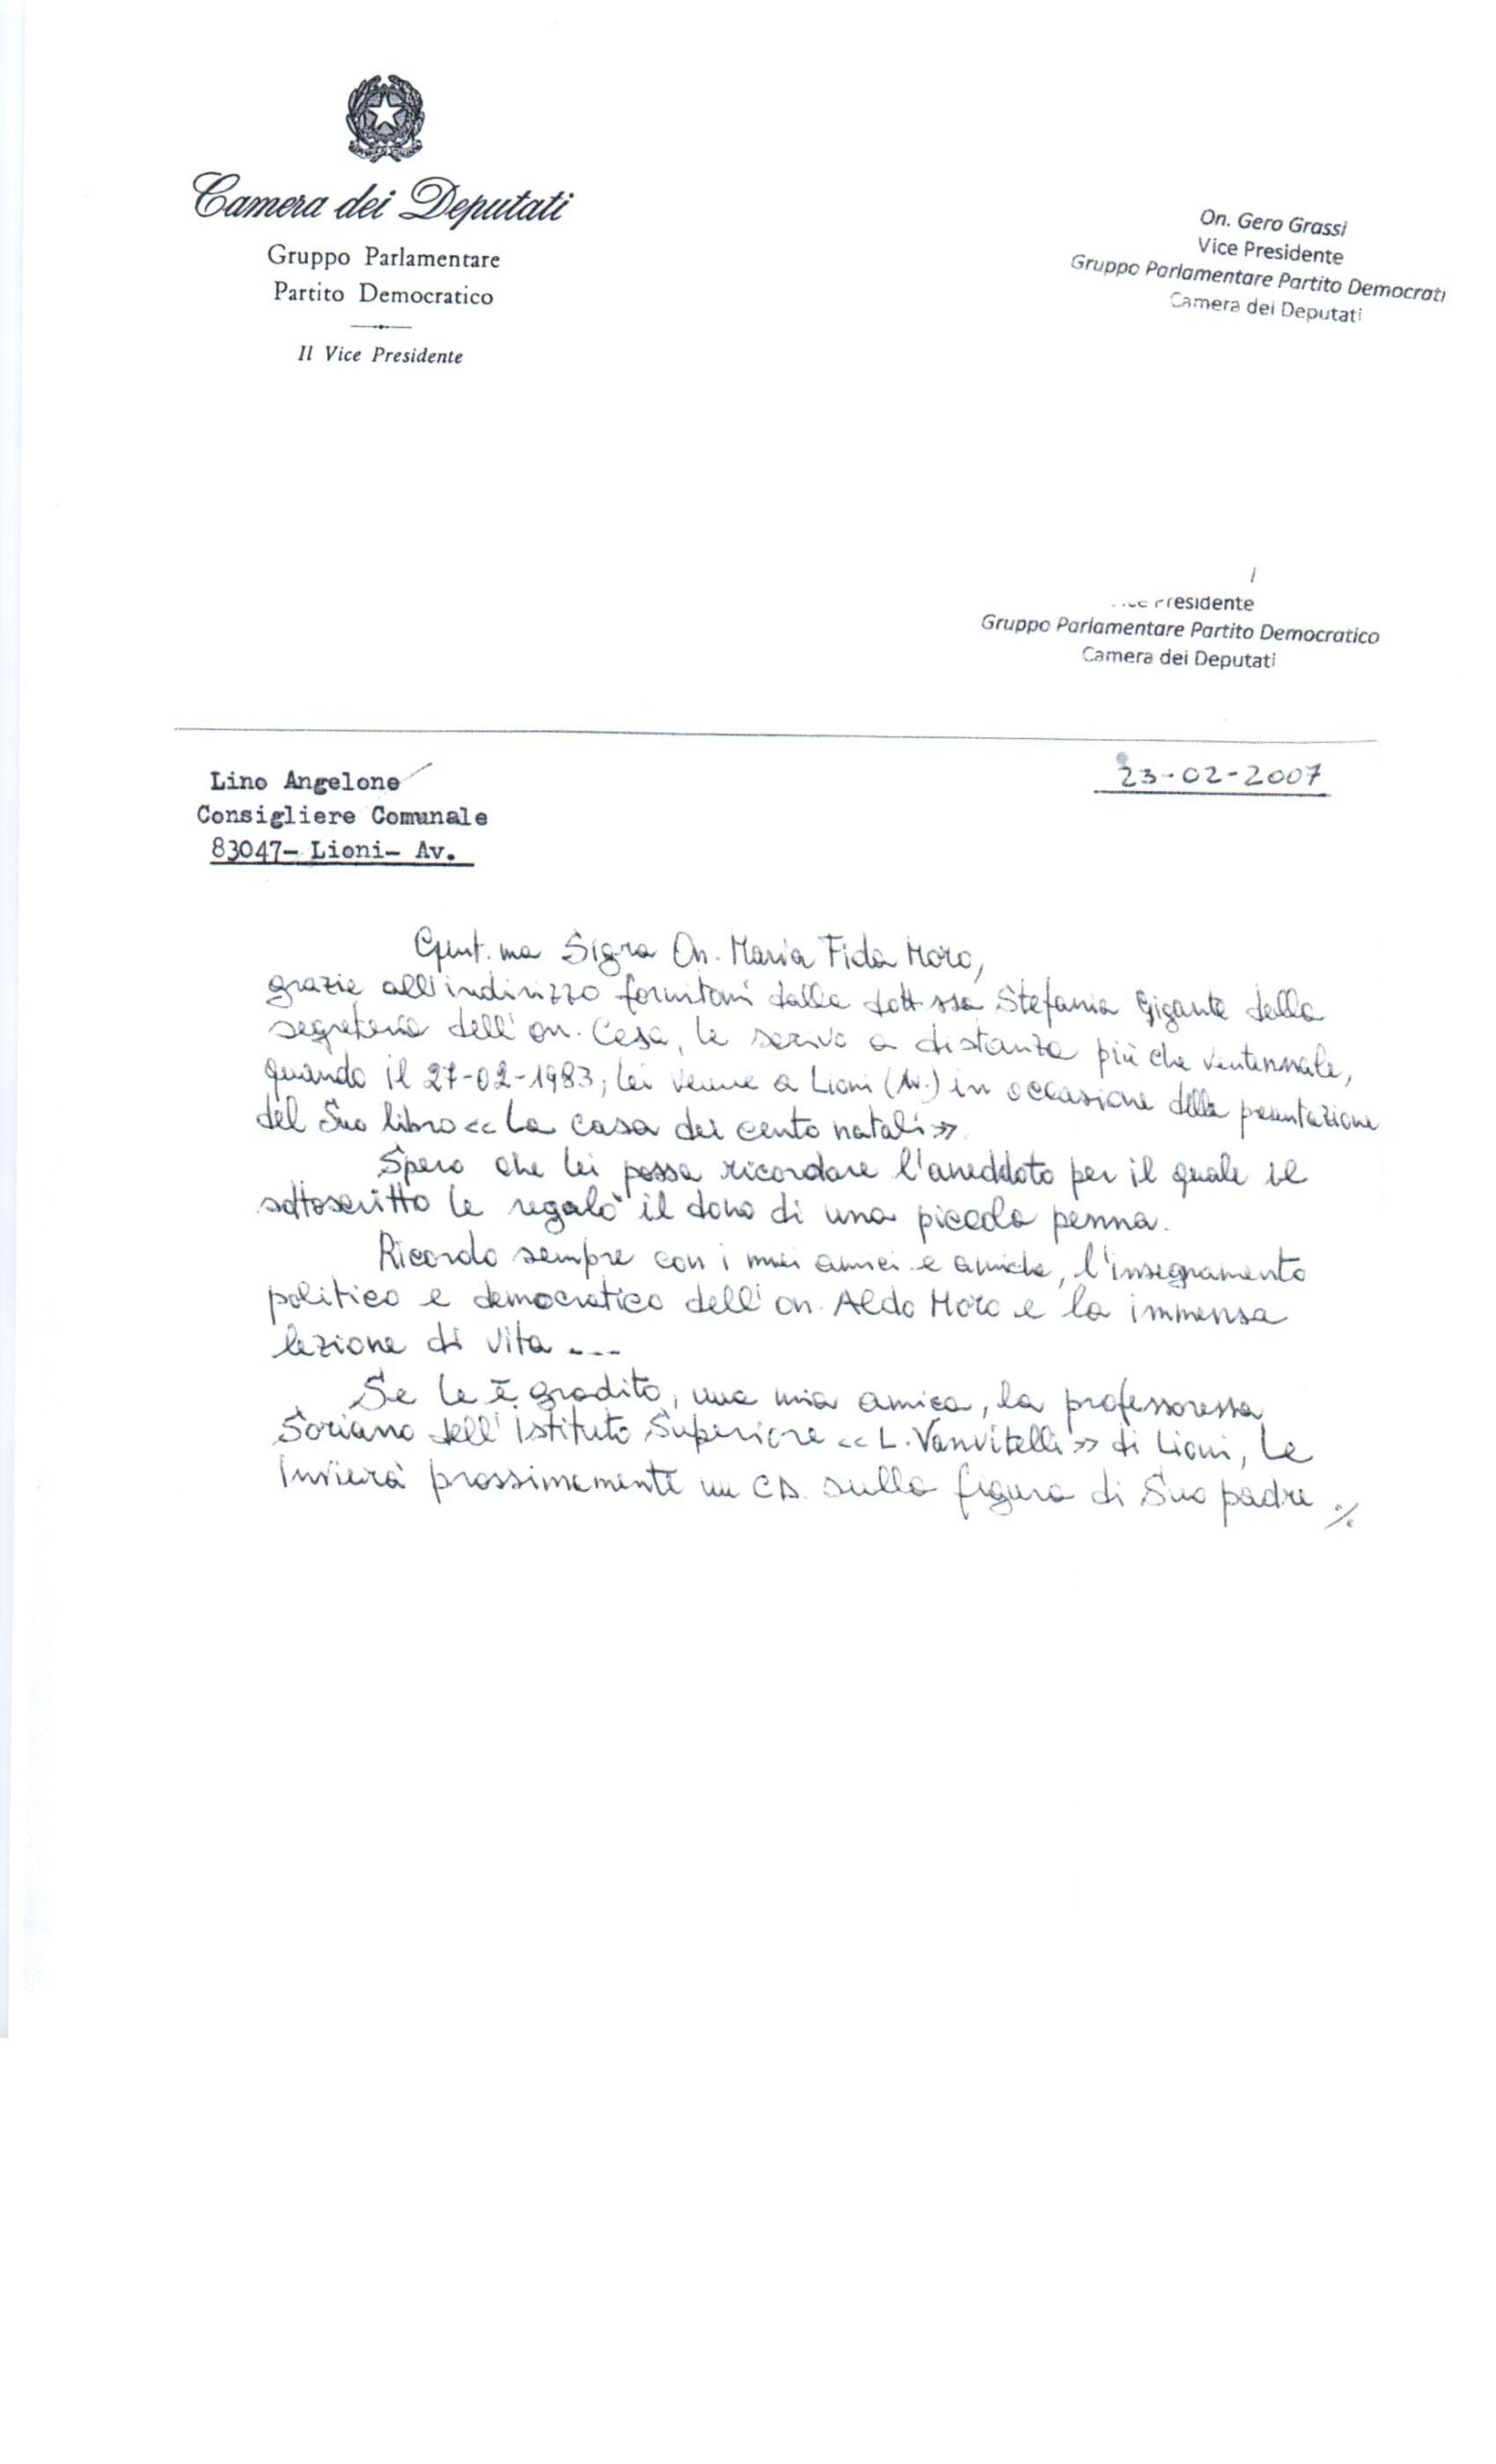 Camera dei Deputati
Gruppo Parlamentare
Partito Democratico
Il Vice Presidente
On. Gero Grassi
Vice Presidente
Gruppo Parlamentare Partito Democrati
Camera dei Deputati
residente
Gruppo Parlamentare Partito Democratico
Camera dei Deputati
Lino Angelone
Consigliere Comunale
83047- Lioni- Av.
23-02-2007
Gent.ma Sigra On. Maria Fida Moro,
grazie all'indirizzo fornitomi dalla dott.ssa Stefania Gigante della
segreteria dell'on. Cesa, le scrivo a distanza più che ventennale,
quando il 27-02-1983, lei venne a Lioni (Av.) in occasione della presentazione
del Suo libro << La casa dei cento natali >>.
Spero che lei possa ricordare l'aneddoto per il quale il
sottoscritto le regalò il dono di una piccola penna.
Ricordo sempre con i miei amici e amiche, l'insegnamento
politico e democratico dell'on. Aldo Moro e la immensa
lezione di vita ---
Se le è gradito, una mia amica, la professoressa
Soriano dell'Istituto Superiore << L. Vanvitelli >> di Lioni, le
invierà prossimamente un CD. sulla figura di Suo padre ./.